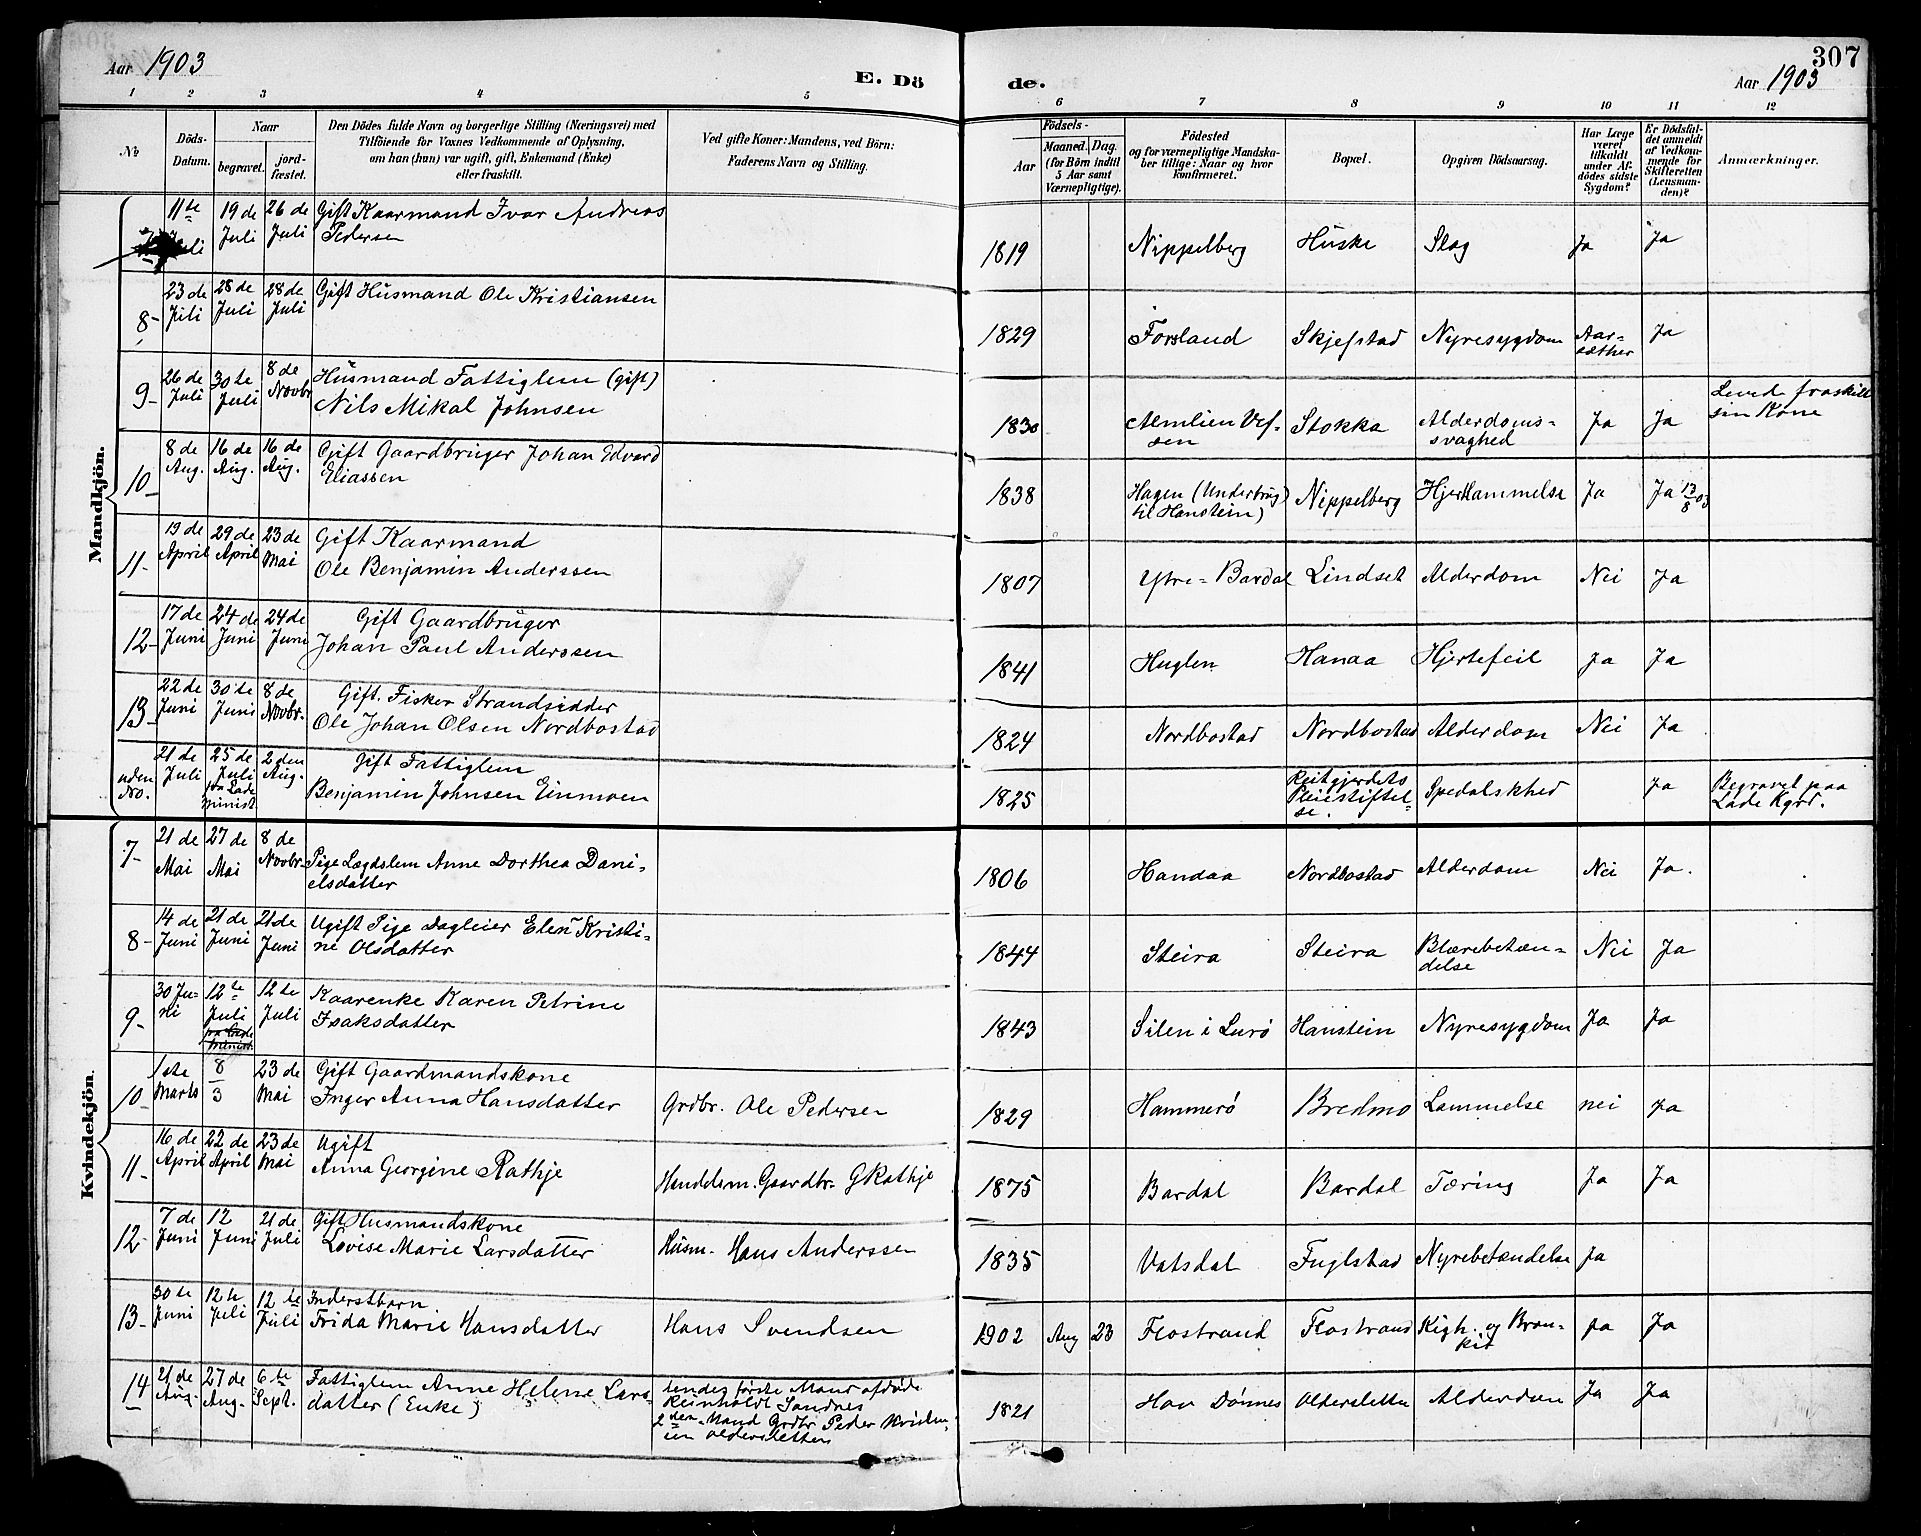 Aar 1903
E. Dö
de.
307
Aar 1903
1 2 3 4 5 6 7 8 9 10 11 12
No
Döds-Datum.
Naar
begravet.
jordfæstet.
Den Dödes fulde Navn og borgerlige Stilling (Næringsvei) med
Tilföiende for Voxnes Vedkommende af Oplysning,
om han (hun) var ugift, gift, Enkemand (Enke)
eller fraskilt.
Ved gifte Koner: Mandens, ved Börn:
Faderens Navn og Stilling.
Födsels-
Aar
Maaned. Dag.
(for Börn indtil
5 Aar samt
Værnepligtige).
Födested
og for værnepligtige Mandska-
ber tillige: Naar og hvor
konfirmeret.
Bopæl.
Opgiven Dödsaarsag.
Har Læge
været
tilkaldt
under Af-
dödes sidste
Sygdom?
Er Dödsfal-
det anmeldt
af Vedkom-
mende for
Skifteretten
(Lensman-
den)?
Anmærkninger.
Mandkjön.
11te Juli 19de Juli 26de Juli Gift Kaarmand Ivar Andreas
Pedersen
1819 Nippelberg Huske Slag Ja Ja
8- 23de Juli 28de Juli 28de Juli Gift Husmand Ole Kristiansen
1829 Forsland Skjefstad Nyresygdom Aar-
sæther Ja
9- 26de Juli 30te Juli 8de Novbr Husmand Fattiglem (gift)
Nils Mikal Johnsen
1830 Almlien Vef-
sen Stokka Alderdoms-
svaghed Ja Ja Leved fraskilt
sin Kone
10- 8de Aug. 16de Aug. 16de Aug. Gift Gaardbruger Johan Edvard
Eliassen
1838 Hagen (Underbrug
til Hanstein) Nippelberg Hjertlammelse Ja Ja 13/8 03
11- 19de April 29de April 23de Mai Gift Kaarmand
Ole Benjamin Anderssen
1807 Ytre-Bardal Lindset Alderdom Nei Ja
12- 17de Juni 24de Juni 24de Juni Gift Gaardbruger
Johan Paul Anderssen
1841 Huglen Hanaa Hjertefeil Ja Ja
13- 22de Juni 30te Juni 8de Novbr. Gift. Fisker Strandsidder
Ole Johan Olsen Nordbostad
1824 Nordbostad Nordbostad Alderdom Nei Ja
uden No. 21de Juli 25de Juli fra Lade Minist. 2den Aug. Gift Fattiglem
Benjamin Johnsen Einmoen
1825 Reitgjerdets
Pleiestiftel-
se. Spedalskhed Ja Begravet paa
Lade Kgrd.
Kvindekjön.
7- 21de Mai 27de Mai 8de Novbr. Pige Lægdslem Anne Dorthea Dani-
elsdatter
1806 Handaa Nordbostad Alderdom Nei Ja.
8- 14de Juni 21de Juni 21de Juni Ugift Pige Dagleier Elen Kristi-
ne Olsdatter
1844 Steira Steira Blærebetæn-
delse Nei Ja
9- 30 Ju-
ni 12te Juli fra Lade Minist. 12te Juli Kaarenke Karen Petrine
Isaksdatter
1843 Silen i Lurø Hanstein Nyresygdom Ja Ja
10- 1ste Marts 8/3 23de Mai Gift Gaardmandskone
Inger Anna Hansdatter Grdbr. Ole Pedersen
1829 Hammerø Bredmo Lammelse nei Ja
11- 16de April 22de April 23de Mai Ugift
Anna Georgine Rathje Handelsm. Gaardbr. G Rathje
1875 Bardal Bardal Tæring Ja Ja
12- 7de Juni 12 Juni 21de Juli Gift Husmandskone
Lovise Marie Larsdatter Husm. Hans Anderssen
1835 Vatsdal Fuglstad Nyrebetændelse Ja
13- 30te Juni 12te Juli 12te Juli Inderstbarn.
Frida Marie Hansdatter Hans Svendsen
1902 Aug 23 Flostrand Flostrand Kigh. og Bron-
kit Ja Ja
14 21de Aug. 27de Aug. 6te Sept. Fattiglem Anne Helene Lars-
datter (Enke) første Mand afdøde
Reinholdt Sandnes
2den Mand Grdbr Peder
Oldersletten
1821 Hov Dønnes Oldersletta Alderdom Ja Ja